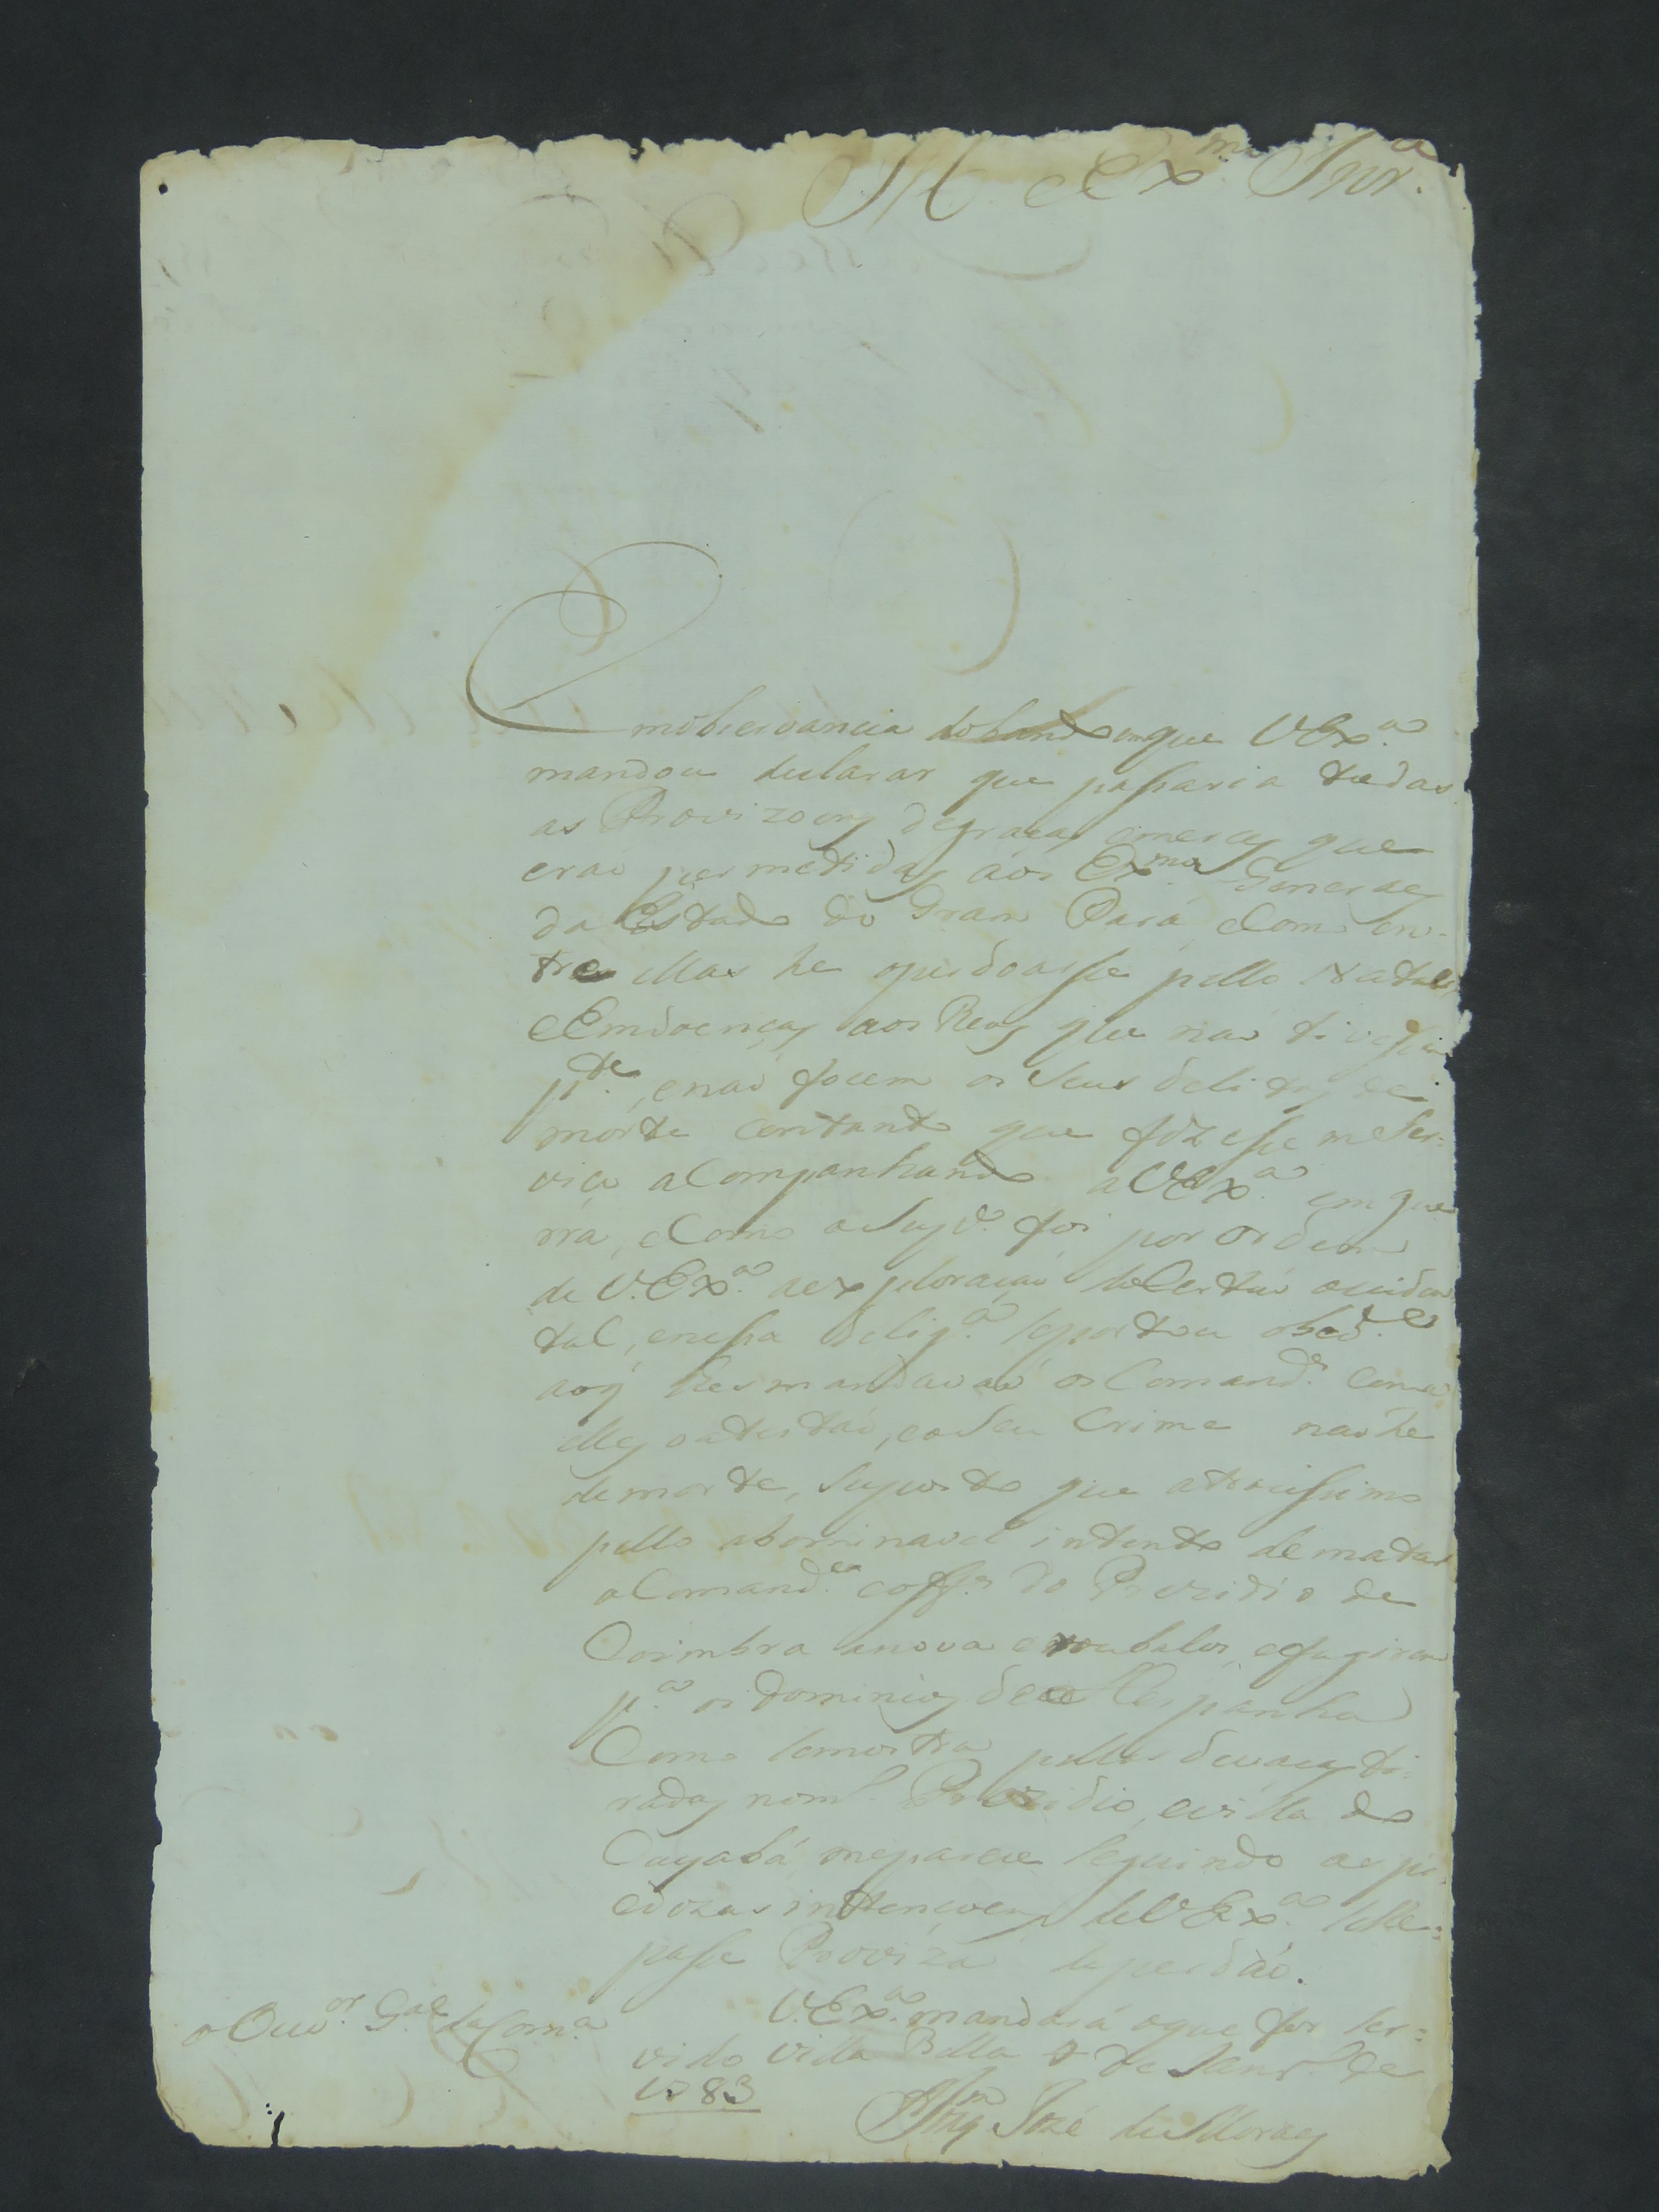 Il Exmo Snr.
Emobservancia dobando emque VExa.
mandou declarar que passaria todas
as Provizoens degraças emerces que
eraó permetidas aós Exmos Generaes
do Estado do Gram Pará eComo en-
tre ellas he operdoarse pello Natal
eEmdoenças aos Reos que naó tivessem
pte., enaó focem os seus delitos de
morte comtanto que fizesse meser-
viço aCompanhando aVExa. em gue
rra, eComo oSupe. foi por ordem
de V.Exa. aexploraçaó doCertaó occiden
tal, enessa deliga. seportou obede.
aoq lhes mandavaó os Comandes. Como
elles oatestaó, eoseu Crime naó he
demorte, suposto que atrocissimo
pello abominavel intento dematar
oComande. eoffes. do Prezidio de
Coimbra anova eroubalos, efugirem
pa. os dominios de Hespanha
Como semostra pellas devaças ti-
radas nomo. Prezidio, evilla do
Cuyabá meparece seguindo as pi-
edozas intençoens deVExa. selhe
passe Proviza deperdaó.
V.Exa. mandará oque for ser-
vido Villa Bella de Janro. de
1783
o Ouvor. Gal daComa.
Joze de Moraes